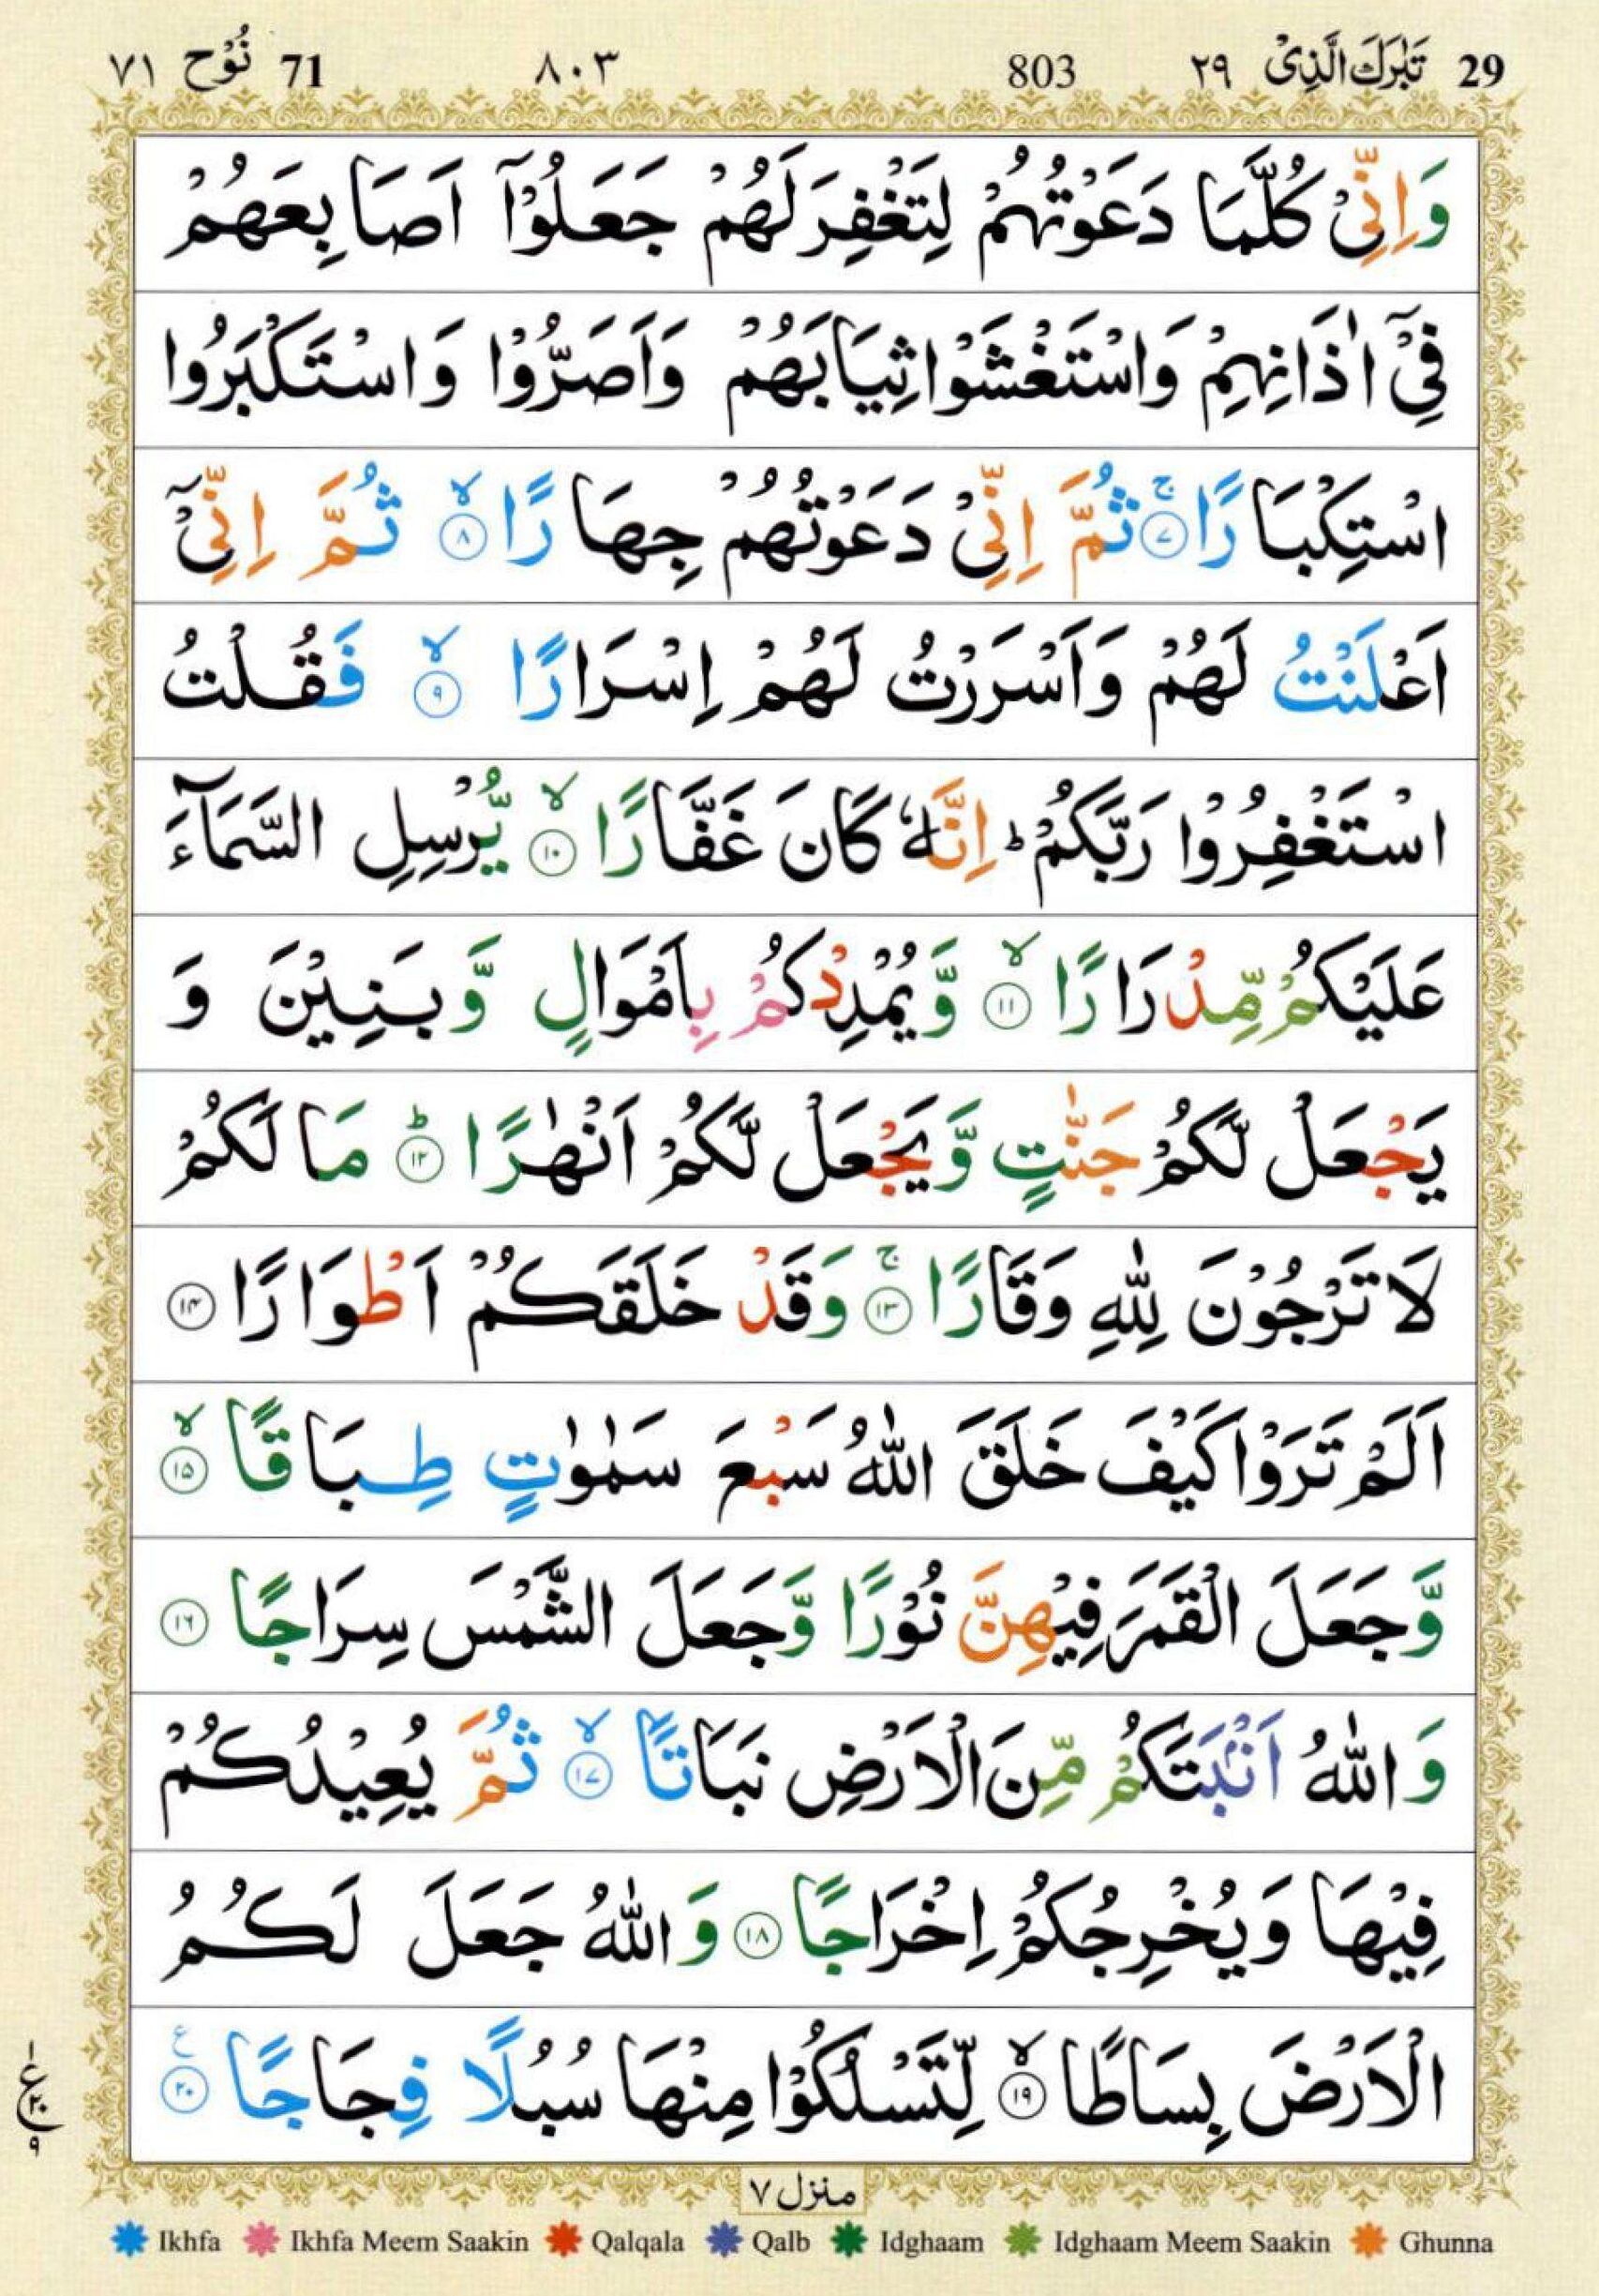 29 تَبٰرَكَ الَّذِیْ ٢٩ 803 ٨٠٣ 71 نُوْح ٧١
وَاِنِّیْ كُلَّمَا دَعَوْتُهُمْ لِتَغْفِرَ لَهُمْ جَعَلُوْۤا اَصَابِعَهُمْ
فِیْۤ اٰذَانِهِمْ وَاسْتَغْشَوْا ثِیَابَهُمْ وَاَصَرُّوْا وَاسْتَكْبَرُوا
اسْتِكْبَارًا ۚ ٧ ثُمَّ اِنِّیْ دَعَوْتُهُمْ جِهَارًا ۙ ٨ ثُمَّ اِنِّیْۤ
اَعْلَنْتُ لَهُمْ وَاَسْرَرْتُ لَهُمْ اِسْرَارًا ۙ ٩ فَقُلْتُ
اسْتَغْفِرُوْا رَبَّكُمْ ؕ اِنَّهٗ كَانَ غَفَّارًا ۙ ١٠ یُّرْسِلِ السَّمَآءَ
عَلَیْكُمْ مِّدْرَارًا ۙ ١١ وَّیُمْدِدْكُمْ بِاَمْوَالٍ وَّبَنِیْنَ وَ
یَجْعَلْ لَّكُمْ جَنّٰتٍ وَّیَجْعَلْ لَّكُمْ اَنْهٰرًا ؕ ١٢ مَا لَكُمْ
لَا تَرْجُوْنَ لِلّٰهِ وَقَارًا ۚ ١٣ وَقَدْ خَلَقَكُمْ اَطْوَارًا ١٤
اَلَمْ تَرَوْا كَیْفَ خَلَقَ اللّٰهُ سَبْعَ سَمٰوٰتٍ طِبَاقًا ۙ ١٥
وَّجَعَلَ الْقَمَرَ فِیْهِنَّ نُوْرًا وَّجَعَلَ الشَّمْسَ سِرَاجًا ١٦
وَاللّٰهُ اَنْۢبَتَكُمْ مِّنَ الْاَرْضِ نَبَاتًا ۙ ١٧ ثُمَّ یُعِیْدُكُمْ
فِیْهَا وَیُخْرِجُكُمْ اِخْرَاجًا ١٨ وَاللّٰهُ جَعَلَ لَكُمُ
الْاَرْضَ بِسَاطًا ۙ ١٩ لِّتَسْلُكُوْا مِنْهَا سُبُلًا فِجَاجًا ٢٠ ع
١ ع ٢٠ ٩
منزل ٧
Ikhfa Ikhfa Meem Saakin Qalqala Qalb Idghaam Idghaam Meem Saakin Ghunna